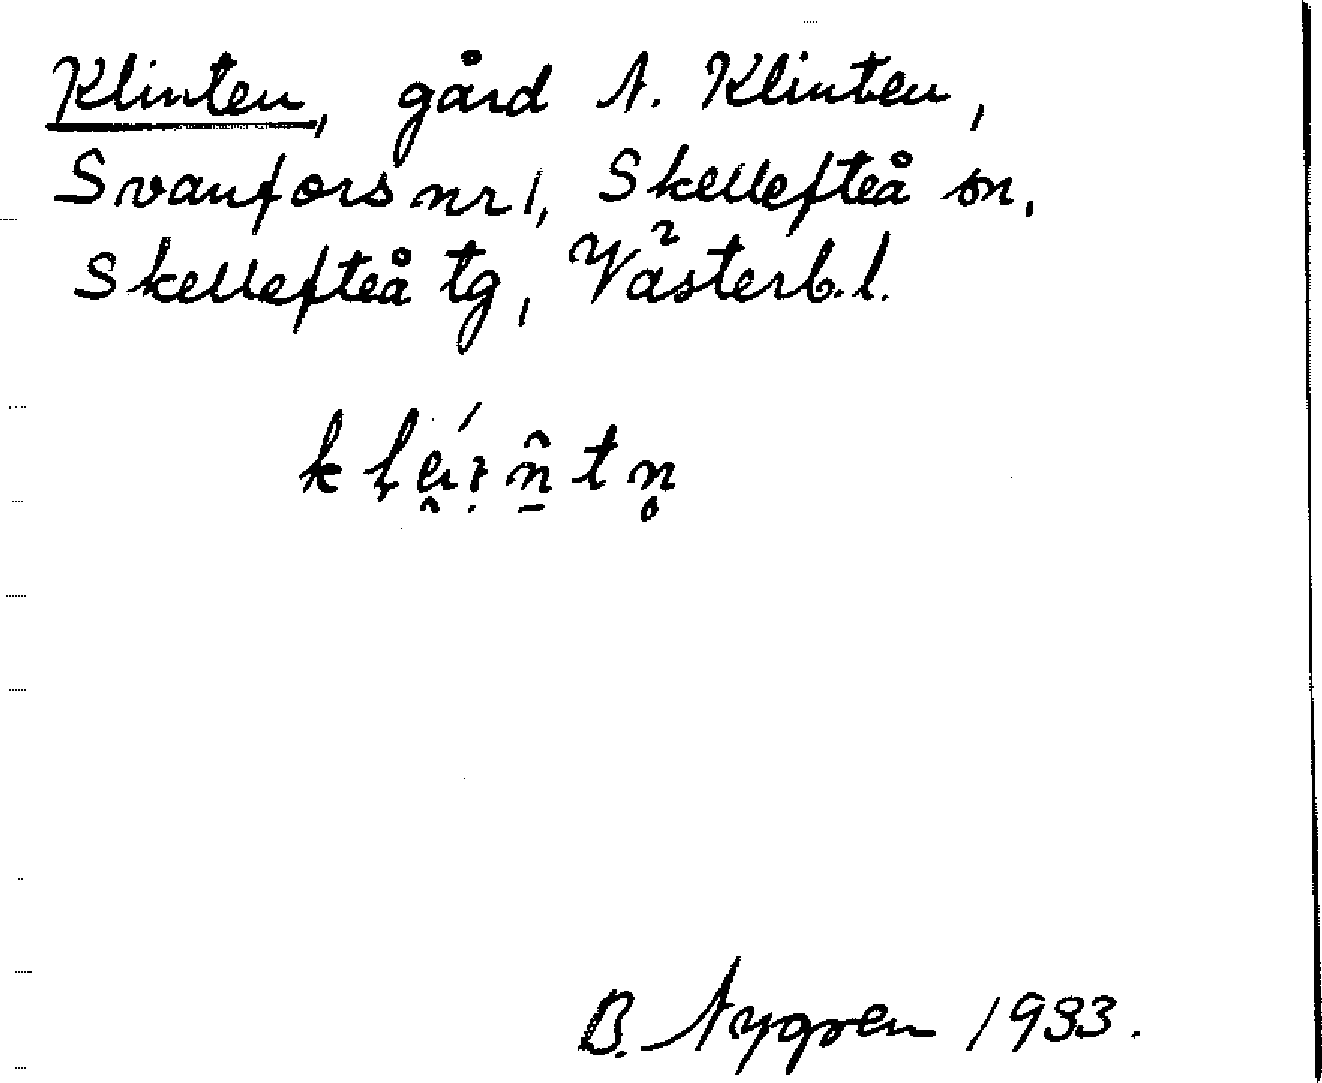 Klinten, gård N. Klinten,
Svanfors nr 1, Skellefteå sn,
Skellefteå tg, Västerb. l.
B. Nygren 1933.